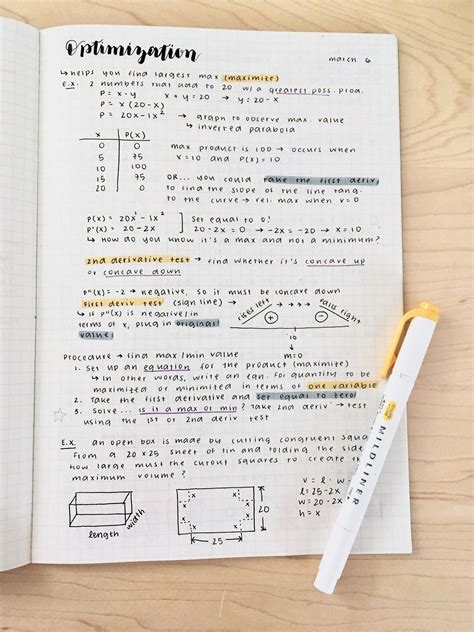 Optimization
march 6
↳ helps you find largest max (maximize)
E.X. 2 numbers that add to 20 w/ a greatest poss. prod.
P = x·y x + y = 20 → y = 20-x
P = x(20-x)
P = 20x-1x² → graph to observe max. value
↳ inverted parabola
x P(x)
0 0
5 75
10 100
15 75
20 0
max product is 100 → occurs when
x=10 and P(x)=10
OR... you could take the first deriv.
to find the slope of the line tang.
to the curve → rel. max when v=0
P(x) = 20x - 1x² ] Set equal to 0?
P'(x) = 20 - 2x ] 20-2x = 0 → -2x = -20 → x=10
↳ how do you know it's a max and not a minimum?
2nd derivative test → find whether it's concave up
or concave down
P"(x) = -2 → negative, so it must be concave down
First deriv test (sign line) →
↳ if P"(x) is negative/in
terms of x, plug in original
value
rises left
falls right
+
−
10
m=0
Procedure → find max/min value
1. Set up an equation for the product (maximize)
↳ In other words, write an eqn. for quantity to be
maximized or minimized in terms of one variable
2. Take the first derivative and set equal to zero!
3. Solve... is it a max or min? Take 2nd deriv → test
using the 1st or 2nd deriv test
E.X. an open box is made by cutting congruent squa
from a 20 x 25 sheet of tin and folding the side
how large must the cutout squares to create th
maximum volume?
length
width
x x
x x
x x
x x
20
25
v = l · w ·
l = 25-2x
w = 20-2x
h = x
MILDLINER